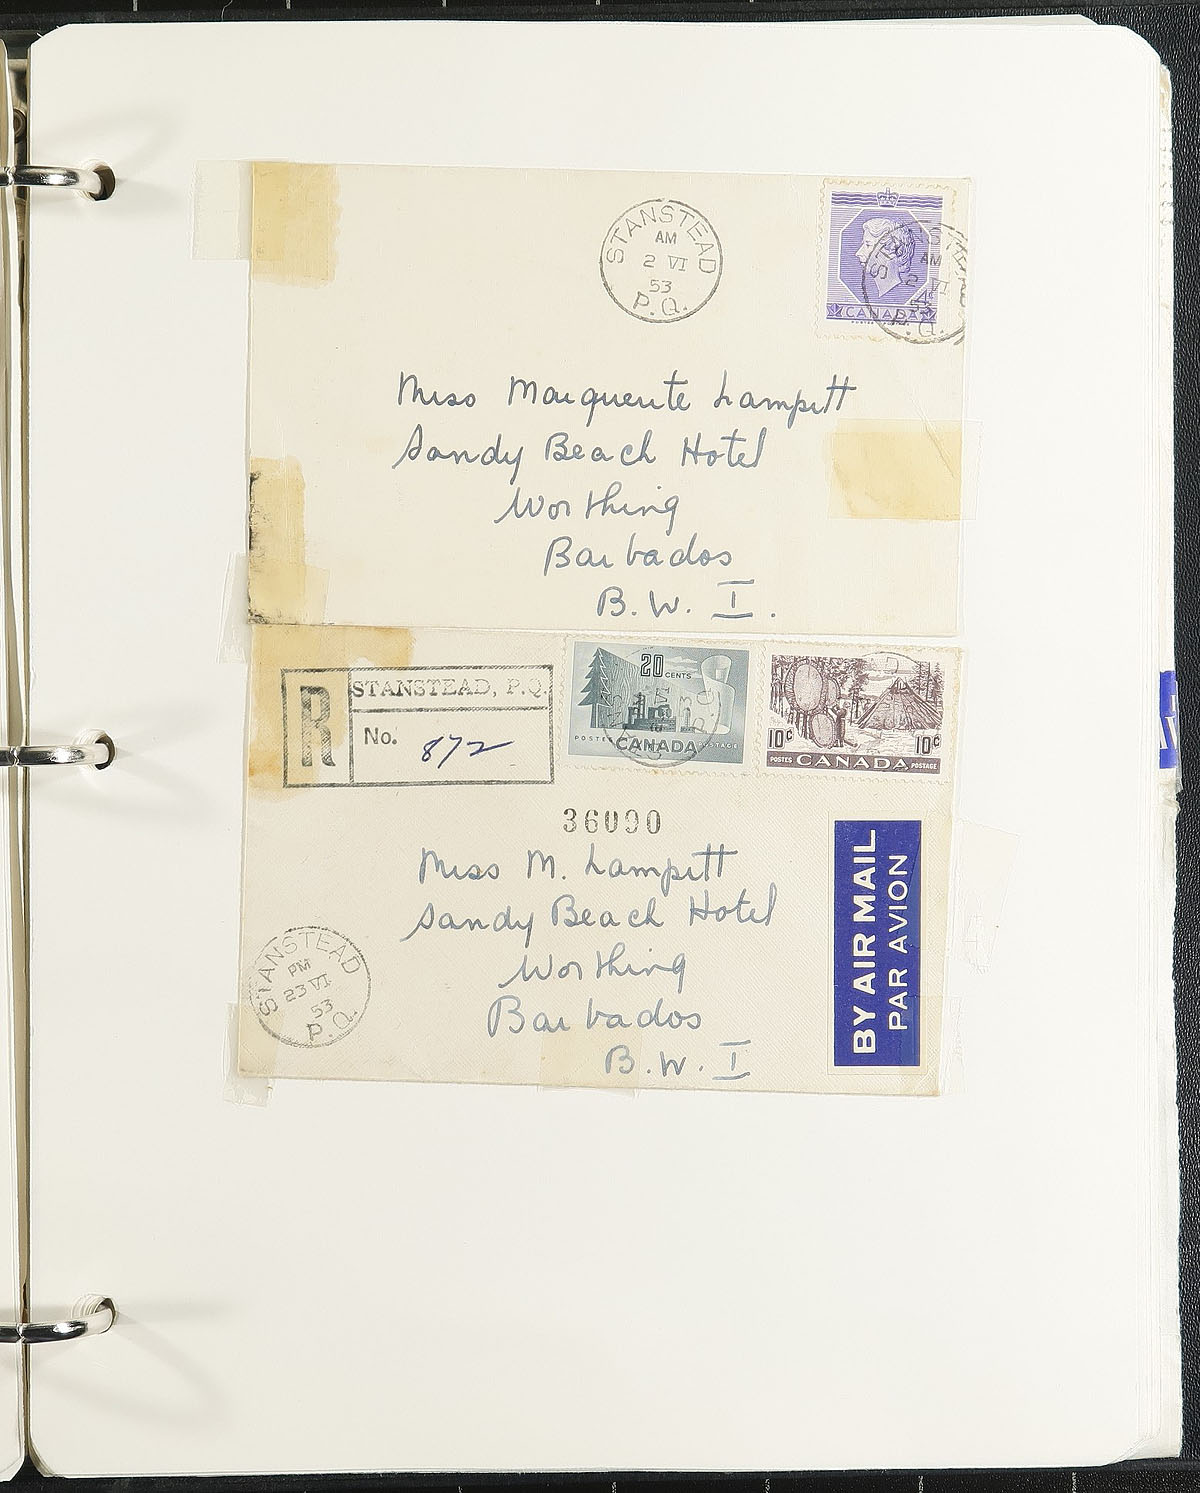 STANSTEAD
AM
2 VI
53
P.Q.
STANSTEAD
AM
2 VI
53
P.Q.
4¢
CANADA
Miss Marguerite Lampitt
Sandy Beach Hotel
Worthing
Barbados
B.W. I.
R
STANSTEAD, P.Q.
No. 872
20
CENTS
POSTES CANADA POSTAGE
10¢ 10¢
POSTES CANADA POSTAGE
36090
Miss M. Lampitt
Sandy Beach Hotel
Worthing
Barbados
B.W. I
BY AIR MAIL
PAR AVION
STANSTEAD
PM
23 VI
53
P.Q.